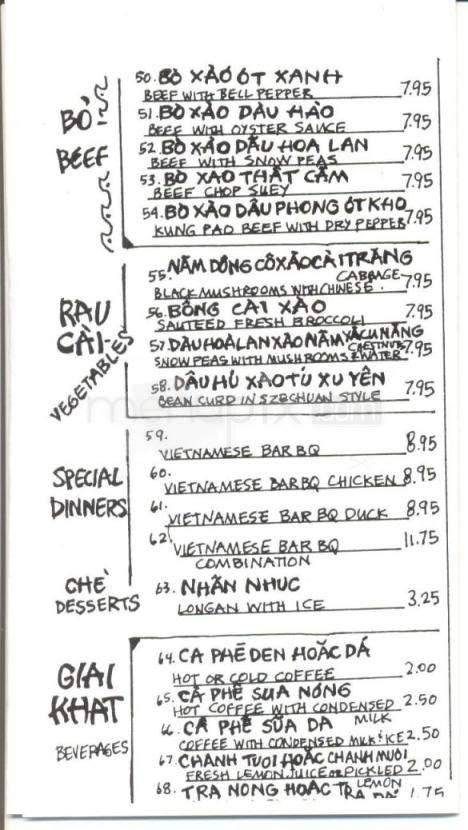 BÒ
BEEF
50. BÒ XÀO ỚT XANH
BEEF WITH BELL PEPPER 7.95
51. BÒ XÀO DẦU HÀO
BEEF WITH OYSTER SAUCE 7.95
52. BÒ XÀO DẬU HOA LAN
BEEF WITH SNOW PEAS 7.95
53. BÒ XAO THẤT CẨM
BEEF CHOP SUEY 7.95
54. BÒ XÀO DẬU PHONG ỚT KHO
KUNG PAO BEEF WITH DRY PEPPER 7.95
RAU
CẢI
VEGETABLES
55. NẤM DÔNG CÔ XÀO CẢI TRẮNG
BLACK MUSHROOMS WITH CHINESE CABBAGE 7.95
56. BÔNG CẢI XÀO
SAUTEED FRESH BROCCOLI 7.95
57. DẬU HOÀ LAN XÀO NẤM VÀ CỦ NĂNG
SNOW PEAS WITH MUSHROOMS & WATER CHESTNUTS 7.95
58. DẬU HỦ XÀO TỨ XUYÊN
BEAN CURD IN SZECHUAN STYLE 7.95
SPECIAL
DINNERS
59. VIETNAMESE BAR BQ 8.95
60. VIETNAMESE BARBQ CHICKEN 8.95
61. VIETNAMESE BAR BQ DUCK 8.95
62. VIETNAMESE BAR BQ 11.75
COMBINATION
CHÈ
DESSERTS
63. NHÃN NHUC
LONGAN WITH ICE 3.25
GIẢI
KHAT
BEVERAGES
64. CA PHÊ DEN HOẶC DÁ
HOT OR COLD COFFEE 2.00
65. CÀ PHÊ SUA NÓNG
HOT COFFEE WITH CONDENSED MILK 2.50
66. CÀ PHÊ SỮA DA
COFFEE WITH CONDENSED MILK & ICE 2.50
67. CHANH TUOI HOẶC CHANH MUOI
FRESH LEMON JUICE OR PICKLED LEMON 2.00
68. TRA NONG HOẶC TRA DA 1.75